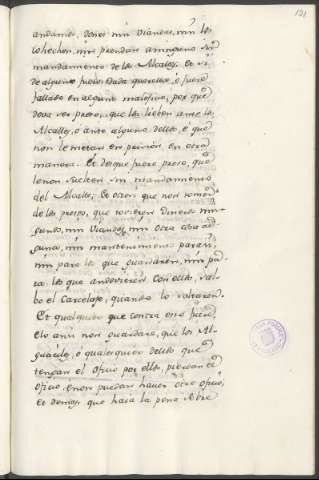 131
andamos, denos nin viandas, nin los
cohechen, nin prendan a ninguno sin
mandamiento de los Alcalles. Et si
de alguno fuere dada querella, ó fuere
fallado en algunt maleficio, por que
deva ser preso, que los lieben ante los
Alcalles, ó ante alguno dellos, é que
non le metan en prision en otra
manera. Et desque fuere preso, que
lo non suelten sin mandamiento
del Alcalle; Et otrosi que non tomen
de los presos, que tovieren dineros nin-
gunos, nin viandas, nin otra cosa al-
guna, nin mantenimiento para si,
nin para los que guardaren, nin pa-
ra los que andovieren con ellos, sal-
bo el Carcelaje, quando lo soltaren.
Et qualquier que contra esto fuere,
é lo ansi non guardare, que los Al-
guaciles, ó qualesquier dellos que
tengan el oficio por ellos, pierdan el
oficio, é non puedan haver otro oficio,
Et demas que haia la pena sobre